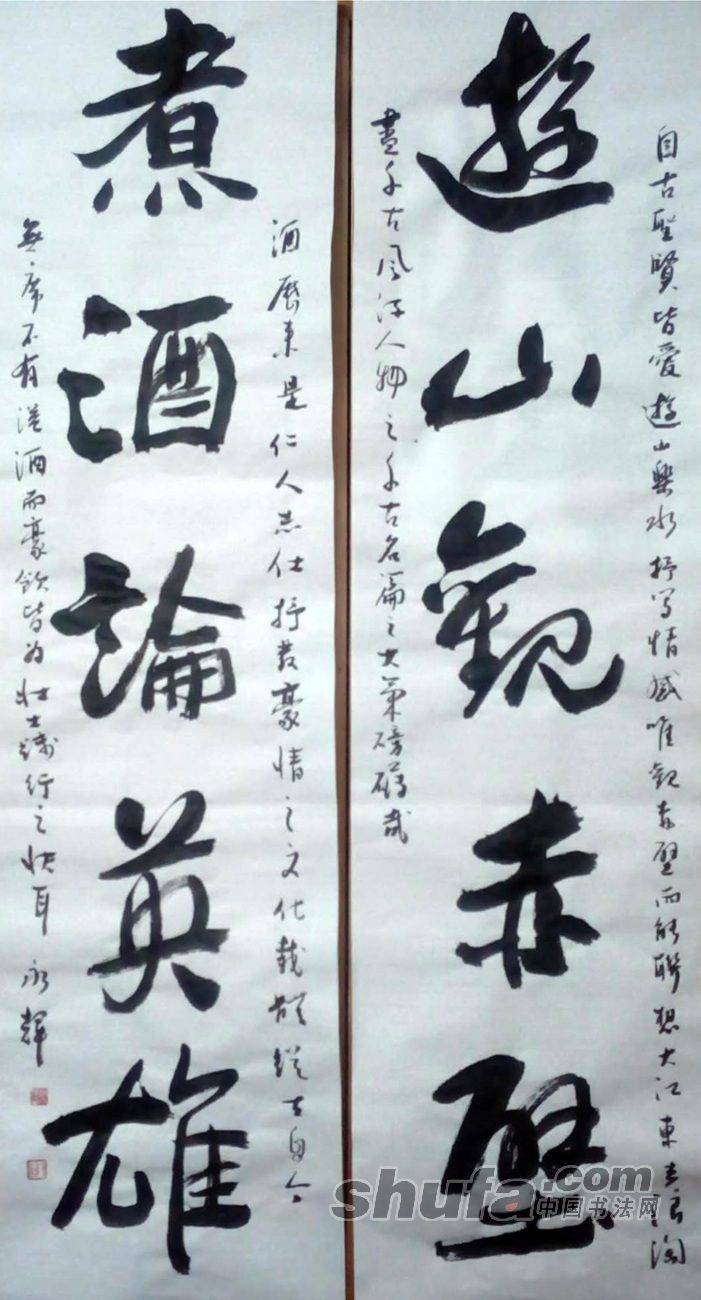 遊山觀赤壁
自古聖賢皆愛遊山樂水抒寫情感唯觀赤壁而能聯想大江東去浪淘
盡千古風流人物之千古名篇之大氣磅礴哉
煮酒論英雄
酒歷來是仁人志仕抒發豪情之文化載體從古自今
無席不有溢酒而豪飲皆為壯士踐行之快耳 永輝
shufa.com
中国书法网